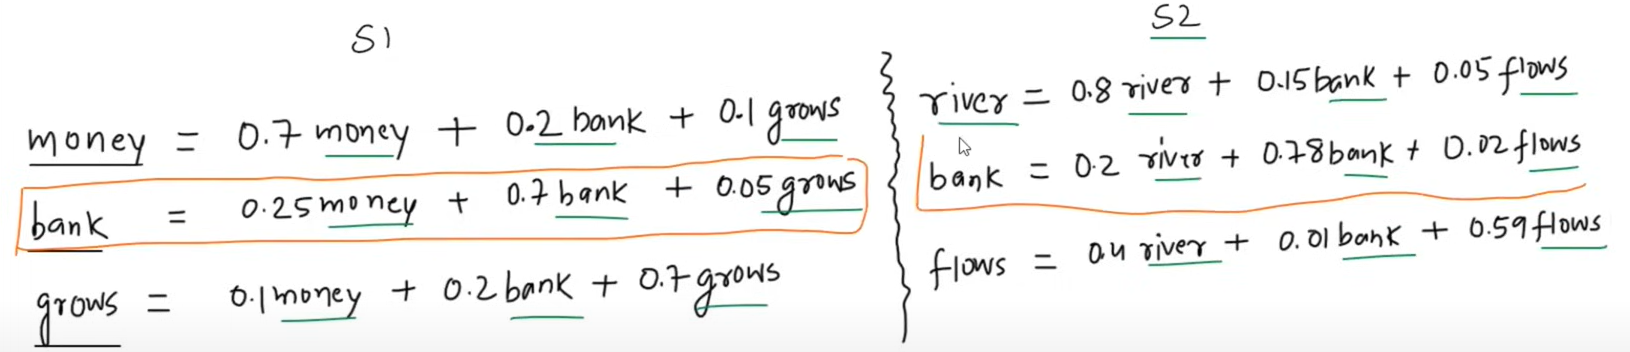 S1
money = 0.7 money + 0.2 bank + 0.1 grows
bank = 0.25 money + 0.7 bank + 0.05 grows
grows = 0.1 money + 0.2 bank + 0.7 grows
S2
river = 0.8 river + 0.15 bank + 0.05 flows
bank = 0.2 river + 0.78 bank + 0.02 flows
flows = 0.4 river + 0.01 bank + 0.59 flows